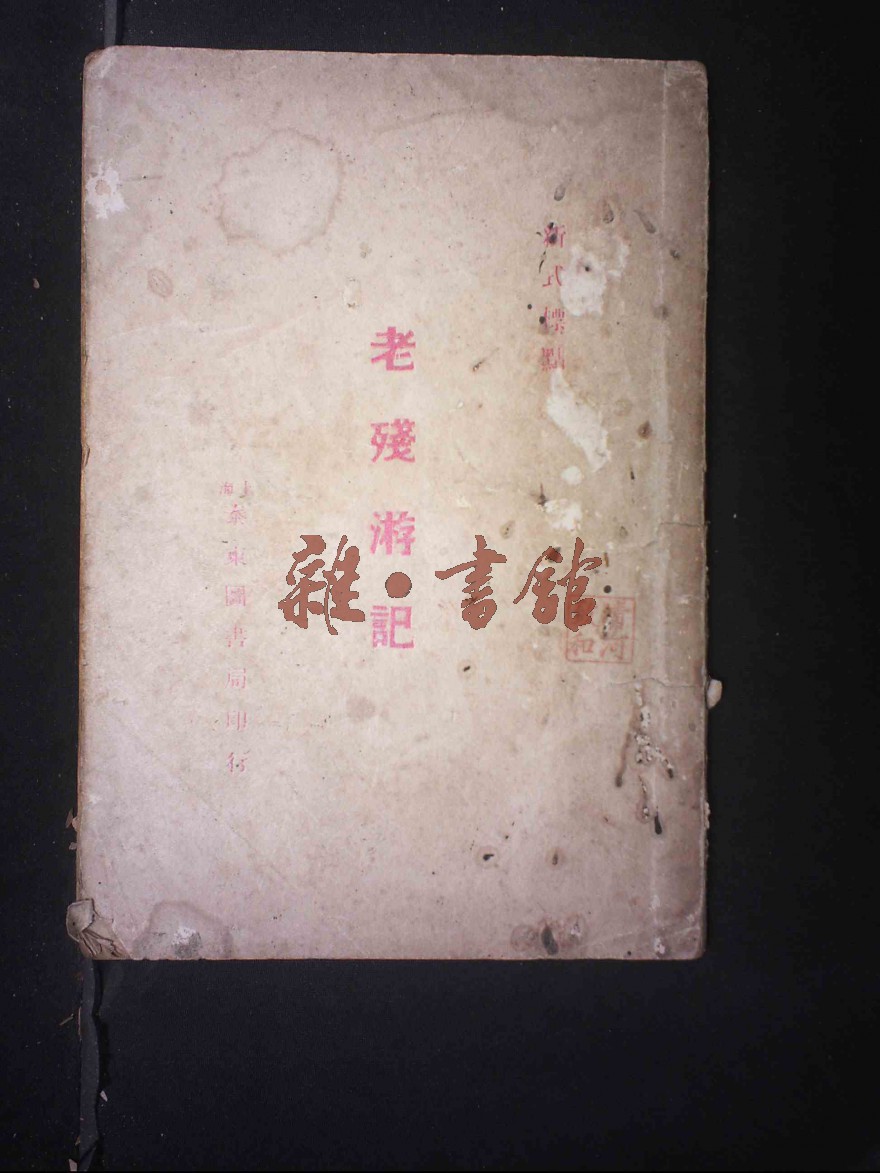 新式標點
老殘游記
上海泰東圖書局印行
雜·書館